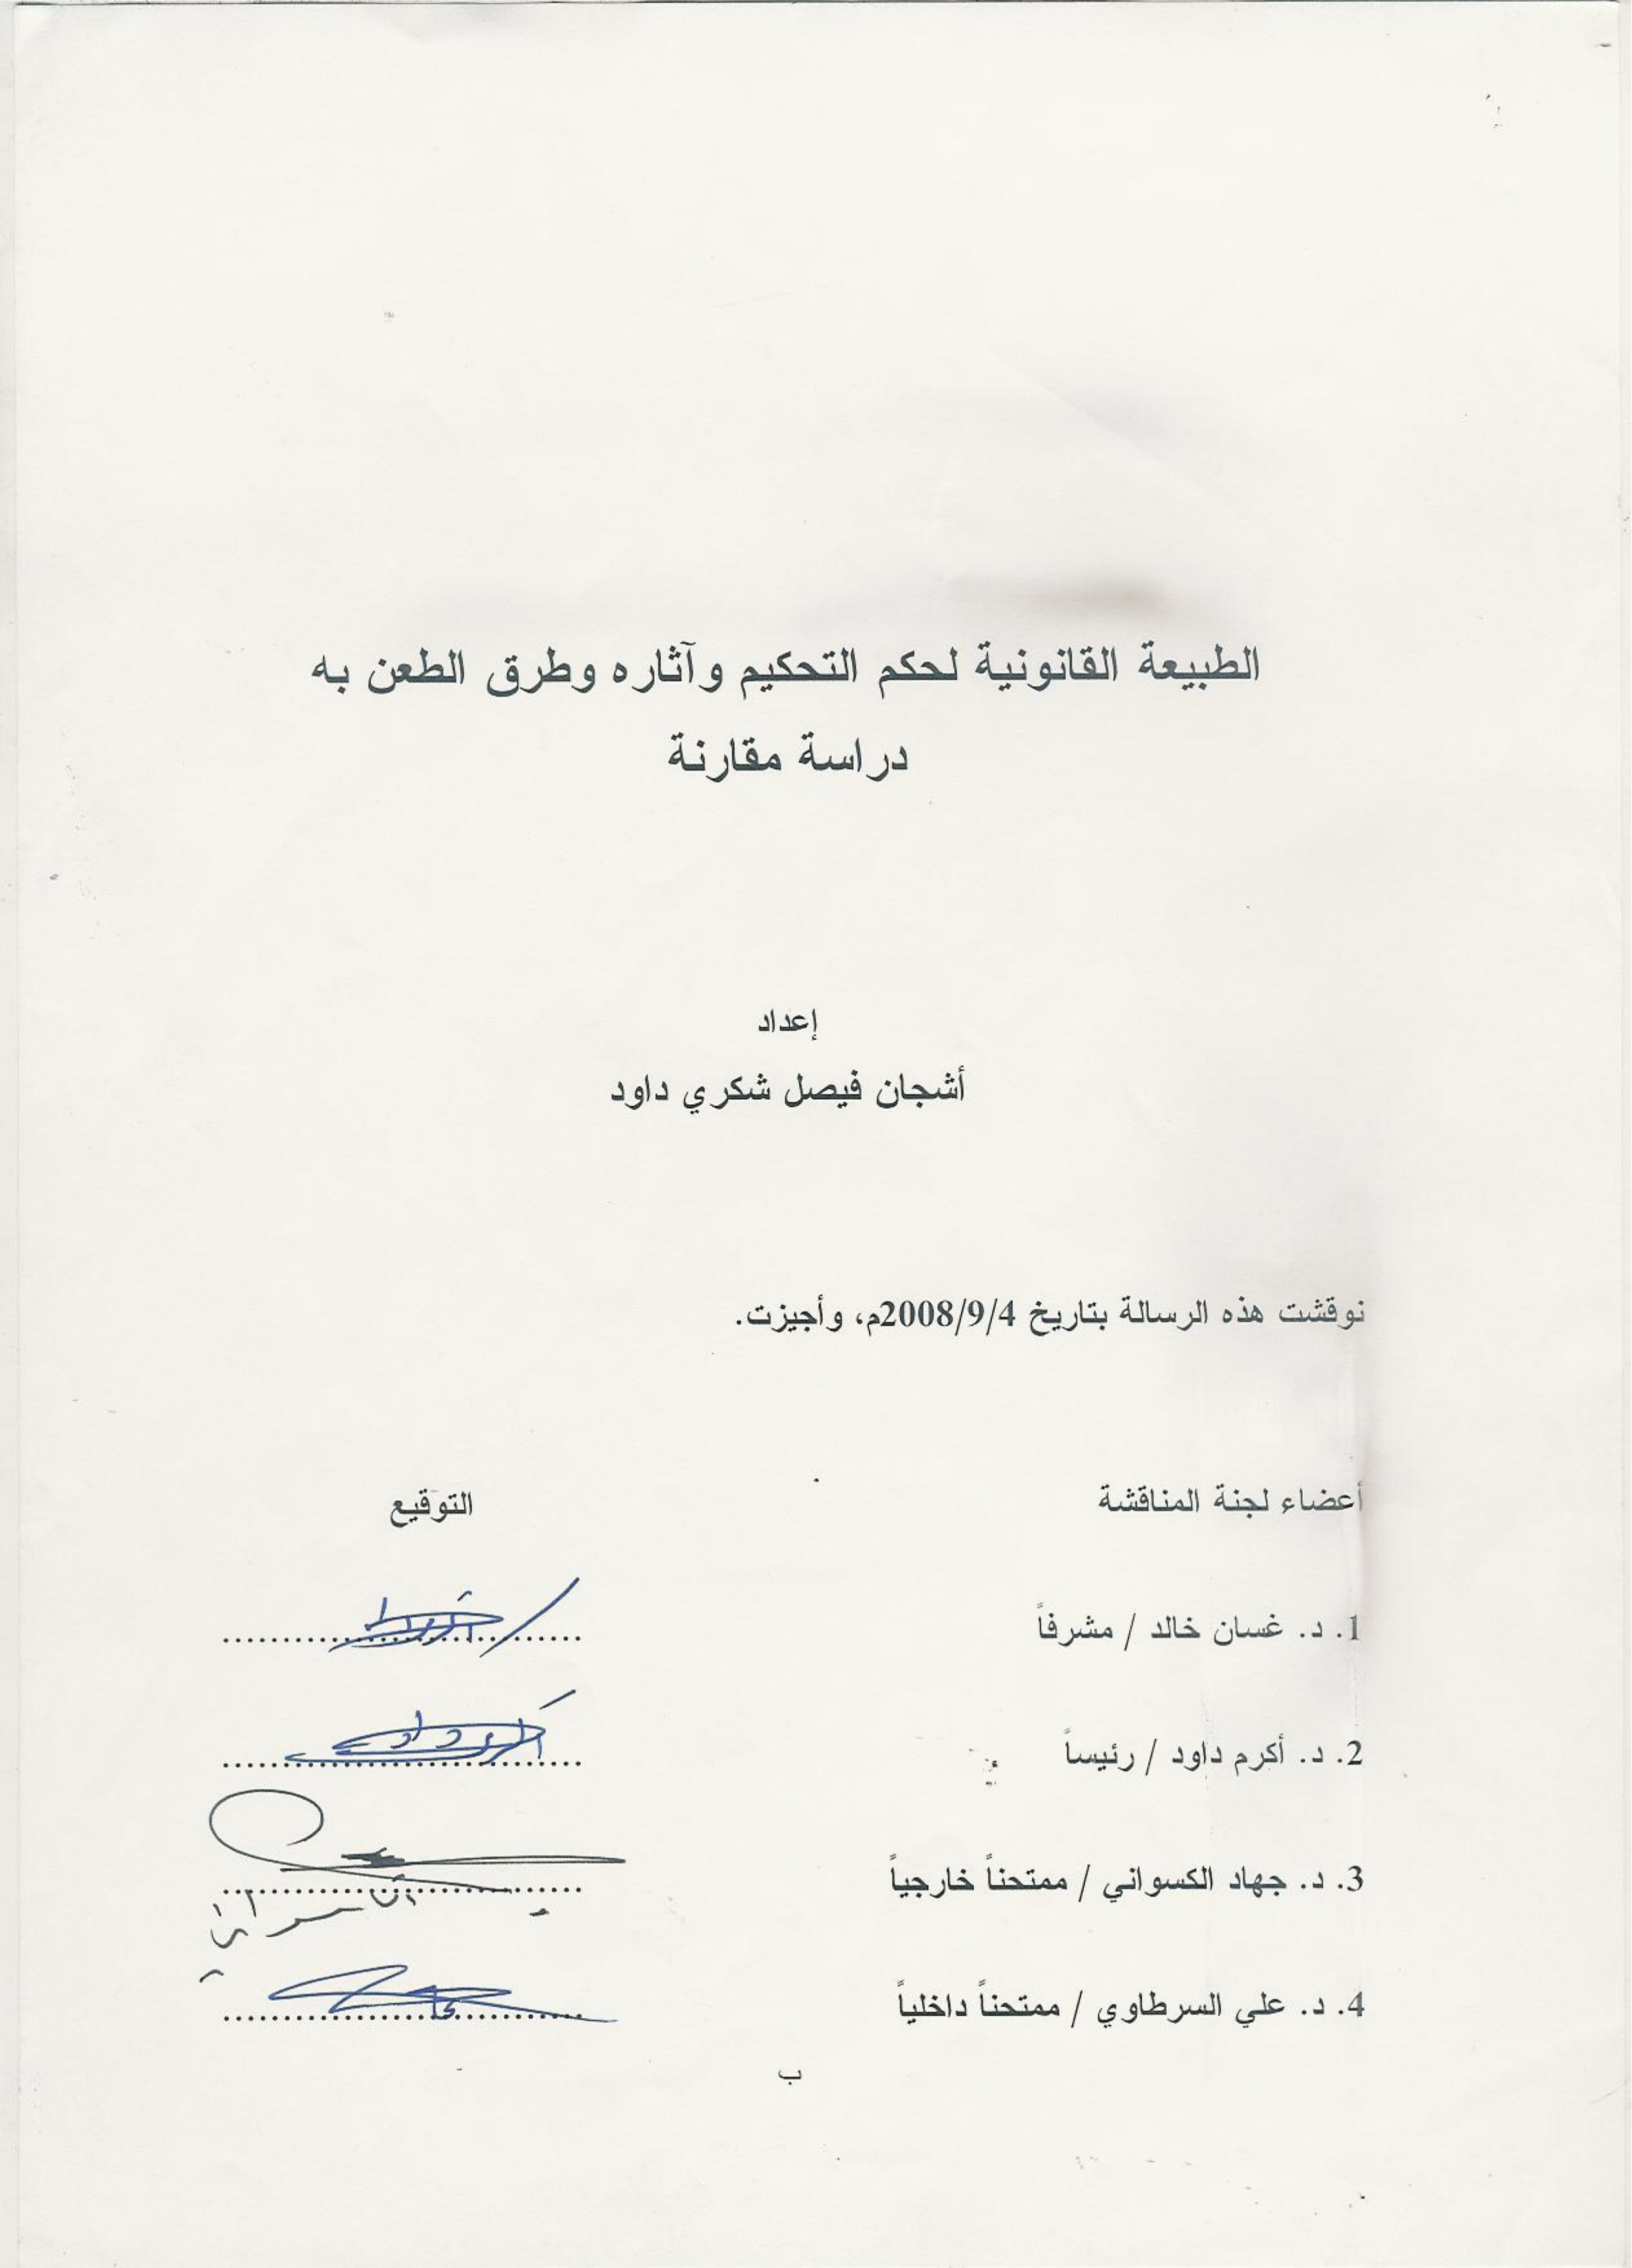 الطبيعة القانونية لحكم التحكيم وآثاره وطرق الطعن به
دراسة مقارنة
إعداد
أشجان فيصل شكري داود
نوقشت هذه الرسالة بتاريخ 2008/9/4م، وأجيزت.
أعضاء لجنة المناقشة التوقيع
1. د. غسان خالد / مشرفاً ..............................
2. د. أكرم داود / رئيساً ..............................
3. د. جهاد الكسواني / ممتحناً خارجياً ..............................
4. د. علي السرطاوي / ممتحناً داخلياً ..............................
ب